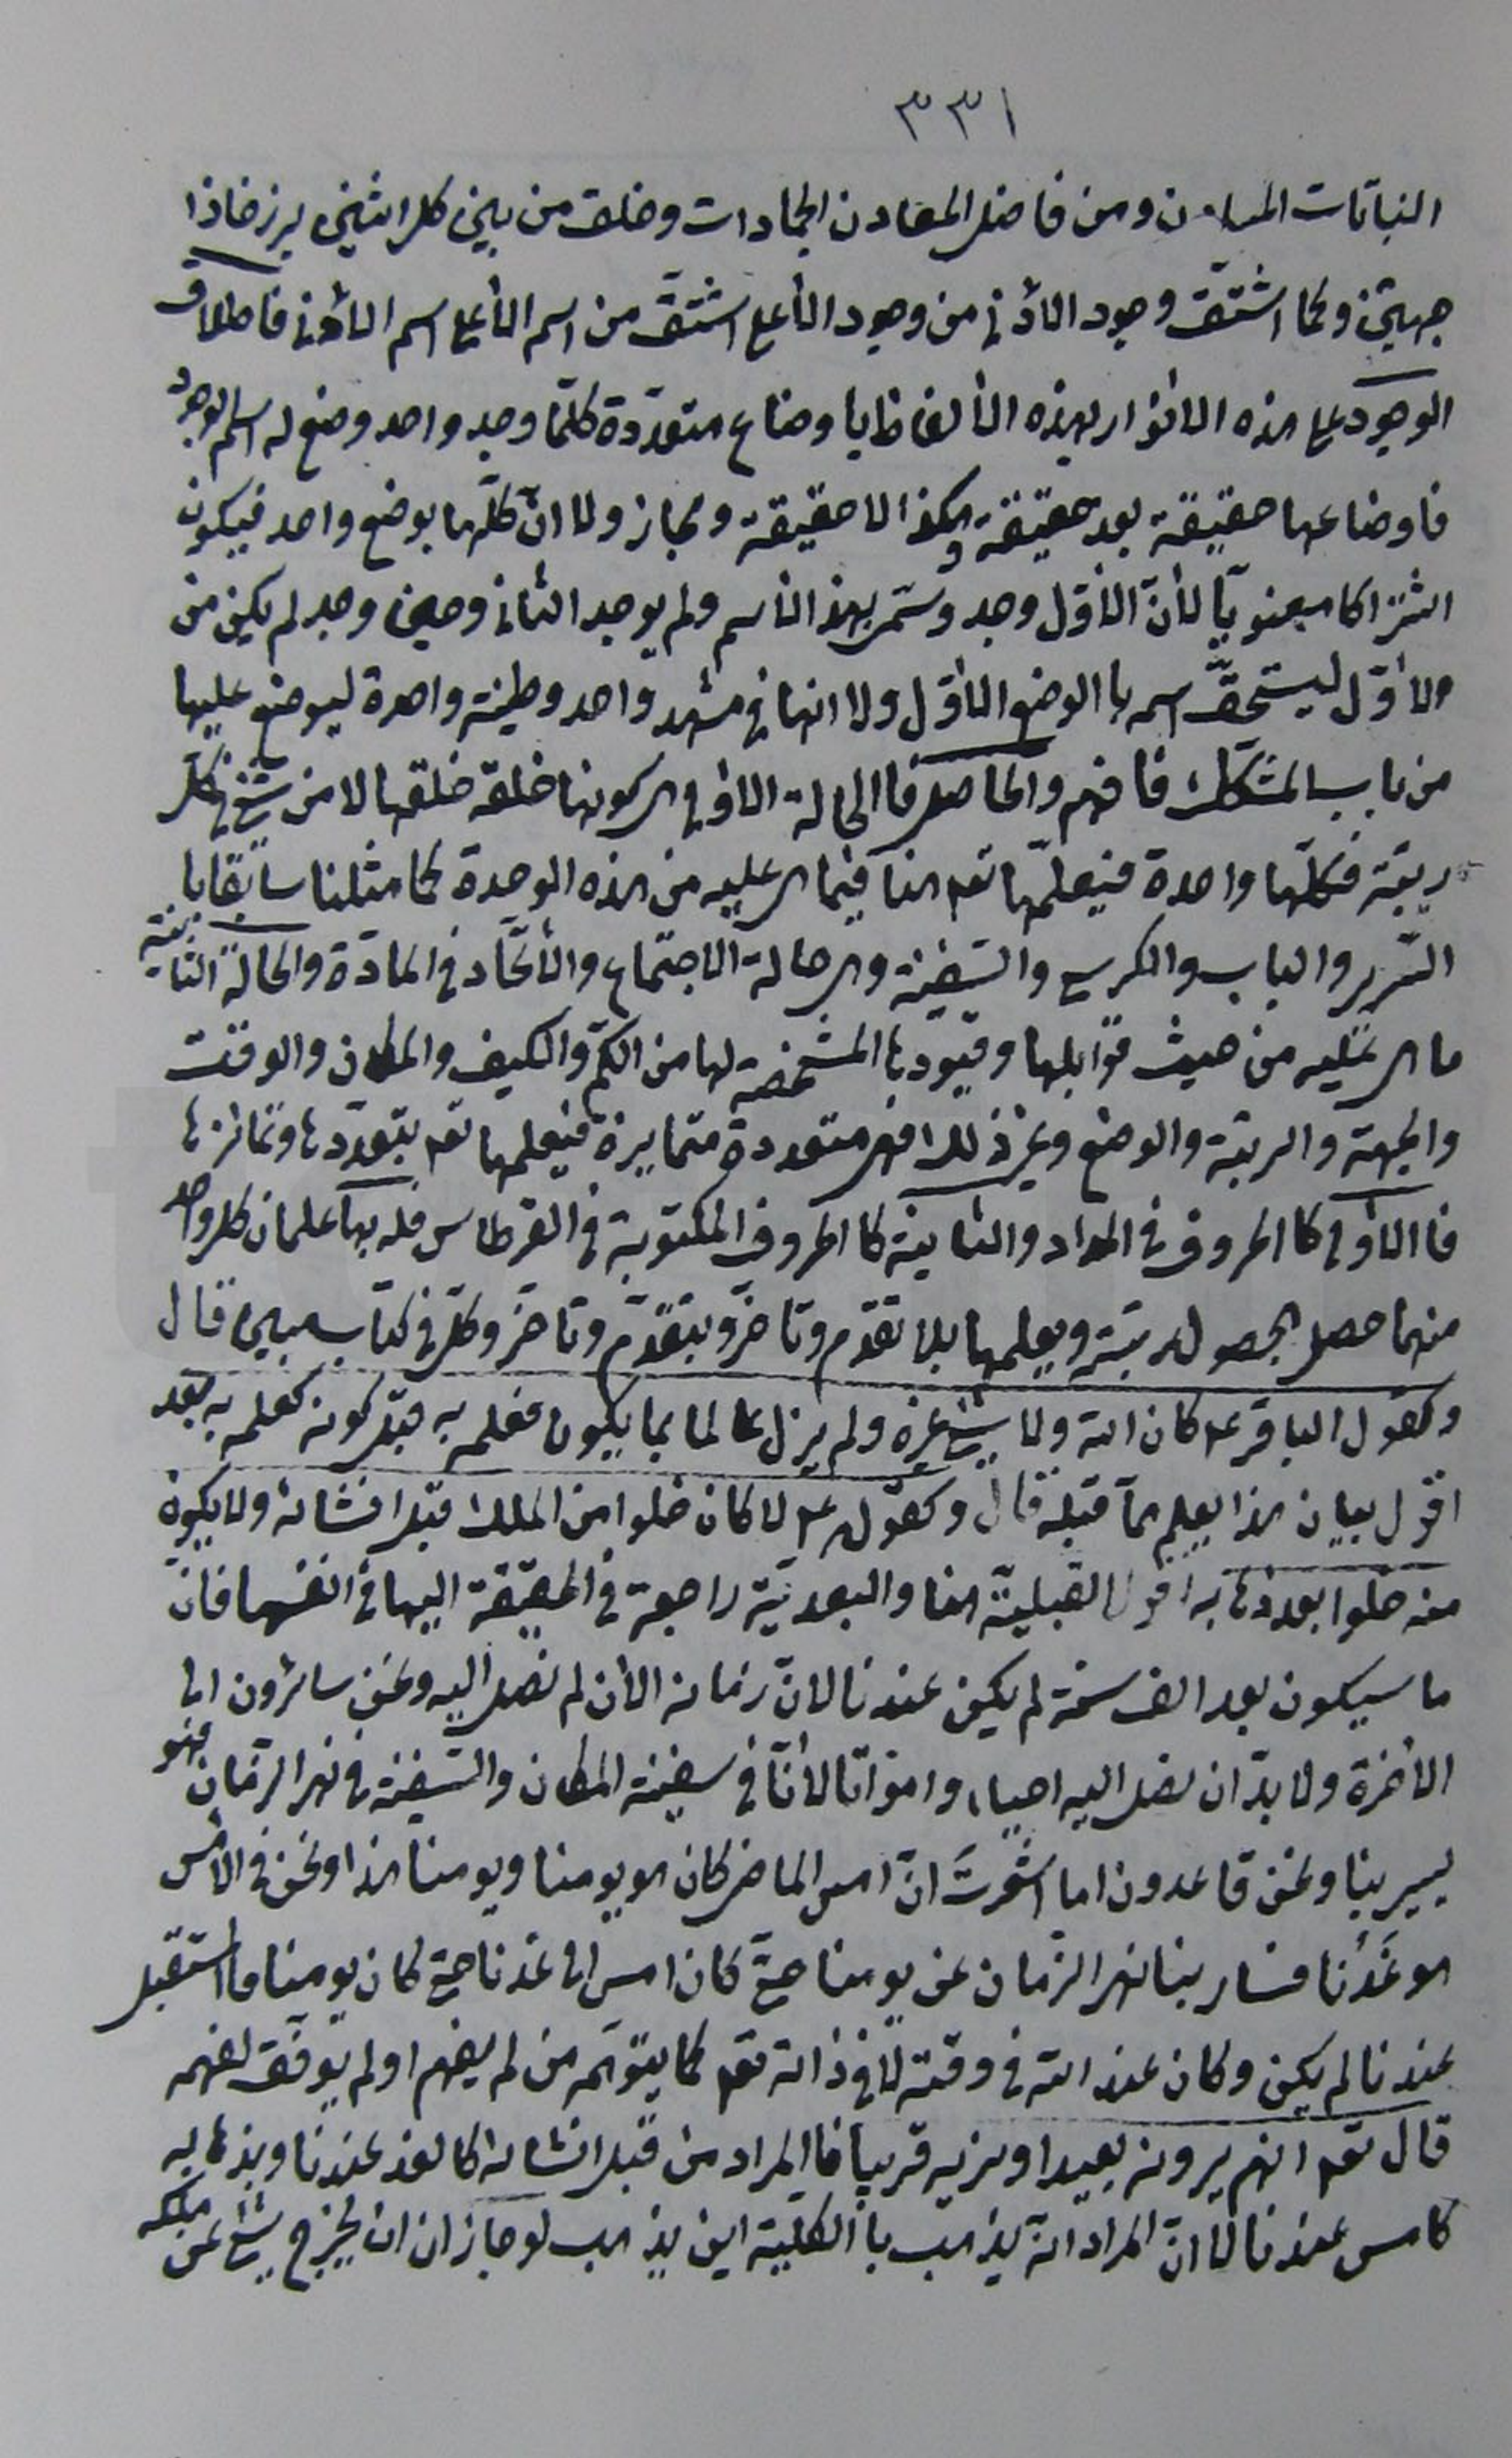 ٣٣١
النباتات المعادن ومن فاضل المعادن الجمادات وخلق من بين كل اثنين برزخا ذا
جهتين وكما اشتق وجود الادنى من وجود الأعلى اشتق من اسم الأعلى اسم الأدنى فاطلاق
الوجود على هذه الانوار بهذه الألفاظ باوضاع متعددة كلما وجد واحد وضع له اسم الوجود
فاوضاعها حقيقة بعد حقيقة وهكذا لا حقيقة ومجاز ولا ان كلها بوضع واحد فيكون
اشتراكا معنويا لأن الأول وجد وسمى بهذا الاسم ولم يوجد الثاني وحين وجد لم يكن من
الاول ليستحق اسمه بالوضع الأول ولا انها في مشهد واحد وطينة واحدة ليوضع عليها
من باب المشكك فافهم والحاصل فالحالة الاولى هي كونها خلقة خلقها لا من شيء فكل
رتبة فكلها واحدة فيعلمها تعه هنا فيما هي عليه من هذه الوحدة كما مثلنا سابقا با
السرير والباب والكرسي والسفينة وهي حالة الاجتماع والأتحاد في المادة والحالة الثانية
ما هي عليه من حيث قوابلها وقيودها المشخصة لها من الكم والكيف والمكان والوقت
والجهة والرتبة والوضع وغير ذلك فهي متعددة متمايزة فيعلمها تعه بتعددها وتمائزها
فاالأولى كالحروف في المداد والثانية كالحروف المكتوبة في القرطاس فله بها علمان كل واحد
منهما حصل بحصول رتبته ويعلمها بلا تقدم وتاخر وبتقدم وتاخر وكل في كتاب مبين قال
وكقول الباقر ع كان الله ولا شيء غيره ولم يزل عالما بما يكون فعلمه به قبل كونه كعلمه به بعد
اقول بيان هذا يعلم مما قبله قال وكقوله ع لا كان خلوا من الملك قبل انشائه ولا يكون
منه خلوا بعد ذهابه اقول القبلية هنا والبعدية راجعة في الحقيقة اليها في انفسها فان
ما سيكون بعد الف سنة لم يكن عندنا لان زمانه الأن لم نصل اليه ونحن سائرون الى
الأخرة ولا بد ان نصل اليه احياء وامواتا لأنا في سفينة المكان والسفينة في نهر الزمان فهو
يسير بنا ونحن قاعدون اما اشعرت ان امس الماضي كان هو يومنا ويومنا هذا ونحن في الأمس
هو غدنا فسار بنا نهر الزمان عن يومنا حتى كان امس الى غدنا حتى كان يومنا فالمستقبل
عندنا لم يكن وكان عند الله في وقته لا في ذاته تعه كما يتوهمه من لم يفهم او لم يوفق لفهمه
قال تعه انهم يرونه بعيدا ونريه قريبا فالمراد من قبل انشائه كالغد عندنا وبذهابه
كامس عندنا لا ان المراد انه يذهب با الكلية اين يذهب لو جاز ان ان يخرج شيء عن ملكه